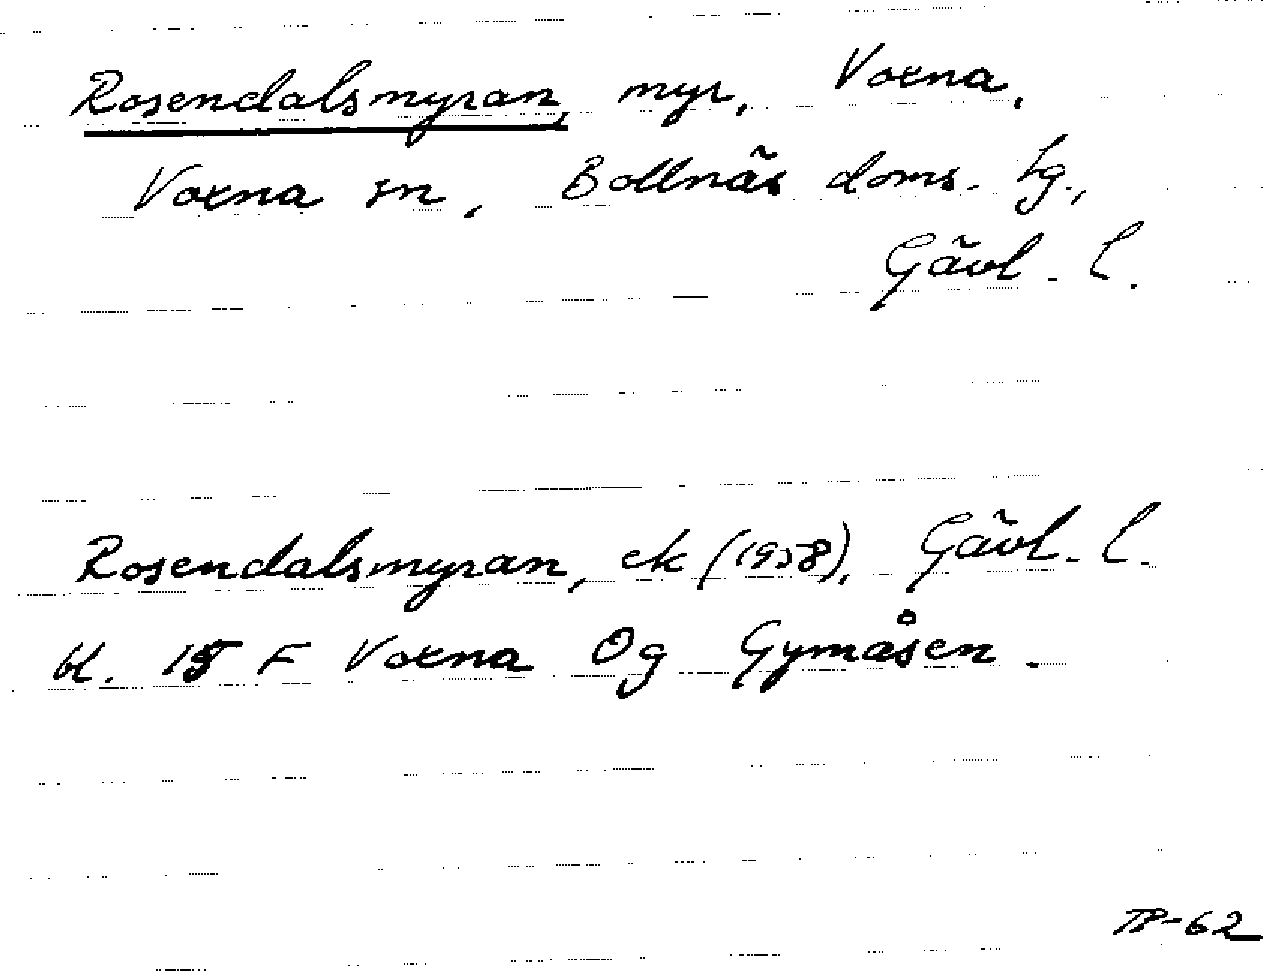 Rosendalsmyran, myr, Voxna,
Voxna sn, Bollnäs doms. tg.,
Gävl. l.
Rosendalsmyran, ek (1958), Gävl. l.
bl. 15 F Voxna Og Gymåsen.
TP-62